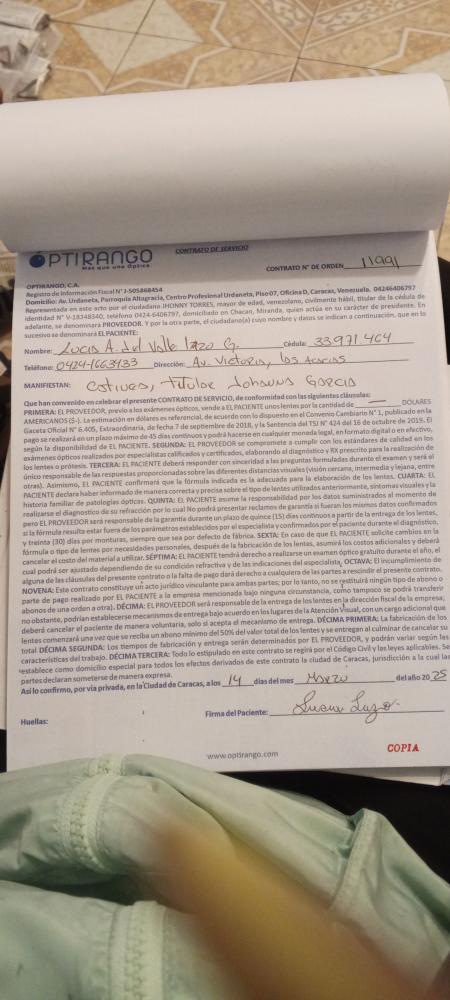 OPTIRANGO
Más que una Óptica
CONTRATO DE SERVICIO
CONTRATO N° DE ORDEN 11991
OPTIRANGO, C.A.
Registro de Información Fiscal N° J-505868454
Domicilio: Av. Urdaneta, Parroquia Altagracia, Centro Profesional Urdaneta, Piso 07, Oficina D, Caracas, Venezuela. 04246406797
Representada en este acto por el ciudadano JHONNY TORRES, mayor de edad, venezolano, civilmente hábil, titular de la cédula de
identidad N° V-18348340, teléfono 0424-6406797, domiciliado en Chacao, Miranda, quien actúa en su carácter de presidente. En
adelante, se denominará PROVEEDOR. Y por la otra parte, el ciudadano(a) cuyo nombre y datos se indican a continuación, que en lo
sucesivo se denominará EL PACIENTE:
Nombre: Lucia A. del Valle Lazo G. Cédula: 33971464
Teléfono: 0424-1663433 Dirección: Av. Victoria, las Acacias
MANIFIESTAN: Titular Johanna Garcia
Que han convenido en celebrar el presente CONTRATO DE SERVICIO, de conformidad con las siguientes cláusulas:
PRIMERA: EL PROVEEDOR, previo a los exámenes ópticos, vende a EL PACIENTE unos lentes por la cantidad de DÓLARES
AMERICANOS ($-). La estimación en dólares es referencial, de acuerdo con lo dispuesto en el Convenio Cambiario N° 1, publicado en la
Gaceta Oficial N° 6.405, Extraordinaria, de fecha 7 de septiembre de 2018, y la Sentencia del TSJ N° 424 del 16 de octubre de 2019. El
pago se realizará en un plazo máximo de 45 días continuos y podrá hacerse en cualquier moneda legal, en formato digital o en efectivo,
según la disponibilidad de EL PACIENTE. SEGUNDA: EL PROVEEDOR se compromete a cumplir con los estándares de calidad en los
exámenes ópticos realizados por especialistas calificados y certificados, elaborando el diagnóstico y RX prescrito para la realización de
los lentes o prótesis. TERCERA: EL PACIENTE deberá responder con sinceridad a las preguntas formuladas durante el examen y será el
único responsable de las respuestas proporcionadas sobre las diferentes distancias visuales (visión cercana, intermedia y lejana, entre
otras). Asimismo, EL PACIENTE confirmará que la fórmula indicada es la adecuada para la elaboración de los lentes. CUARTA: EL
PACIENTE declara haber informado de manera correcta y precisa sobre el tipo de lentes utilizados anteriormente, síntomas visuales y la
historia familiar de patologías ópticas. QUINTA: EL PACIENTE asume la responsabilidad por los datos suministrados al momento de
realizarse el diagnóstico de su refracción por lo cual No podrá presentar reclamos de garantía si fueran los mismos datos confirmados
pero EL PROVEEDOR será responsable de la garantía durante un plazo de quince (15) días continuos a partir de la entrega de los lentes,
si la fórmula resulta estar fuera de los parámetros establecidos por el especialista y confirmados por el paciente durante el diagnóstico,
y treinta (30) días por monturas, siempre que sea por defecto de fábrica. SEXTA: En caso de que EL PACIENTE solicite cambios en la
fórmula o tipo de lentes por necesidades personales, después de la fabricación de los lentes, asumirá los costos adicionales y deberá
cancelar el costo del material a utilizar. SÉPTIMA: EL PACIENTE tendrá derecho a realizarse un examen óptico gratuito durante el año, el
cual podrá ser ajustado dependiendo de su condición refractiva y de las indicaciones del especialista. OCTAVA: El incumplimiento de
alguna de las cláusulas del presente contrato o la falta de pago dará derecho a cualquiera de las partes a rescindir el presente contrato.
NOVENA: Este contrato constituye un acto jurídico vinculante para ambas partes; por lo tanto, no se restituirá ningún tipo de abono o
parte de pago realizado por EL PACIENTE a la empresa mencionada bajo ninguna circunstancia, como tampoco se podrá transferir
abonos de una orden a otra). DÉCIMA: EL PROVEEDOR será responsable de la entrega de los lentes en la dirección fiscal de la empresa;
no obstante, podrían establecerse mecanismos de entrega bajo acuerdo en los lugares de la Atención Visual, con un cargo adicional que
deberá cancelar el paciente de manera voluntaria, solo si acepta el mecanismo de entrega. DÉCIMA PRIMERA: La fabricación de los
lentes comenzará una vez que se reciba un abono mínimo del 50% del valor total de los lentes y se entregan al culminar de cancelar su
total DÉCIMA SEGUNDA: Los tiempos de fabricación y entrega serán determinados por EL PROVEEDOR, y podrán variar según las
características del trabajo. DÉCIMA TERCERA: Todo lo estipulado en este contrato se regirá por el Código Civil y las leyes aplicables. Se
establece como domicilio especial para todos los efectos derivados de este contrato la ciudad de Caracas, jurisdicción a la cual las
partes declaran someterse de manera expresa.
Así lo confirmo, por vía privada, en la Ciudad de Caracas, a los 14 días del mes Marzo del año 2025
Huellas:
Firma del Paciente:
www.optirango.com
COPIA